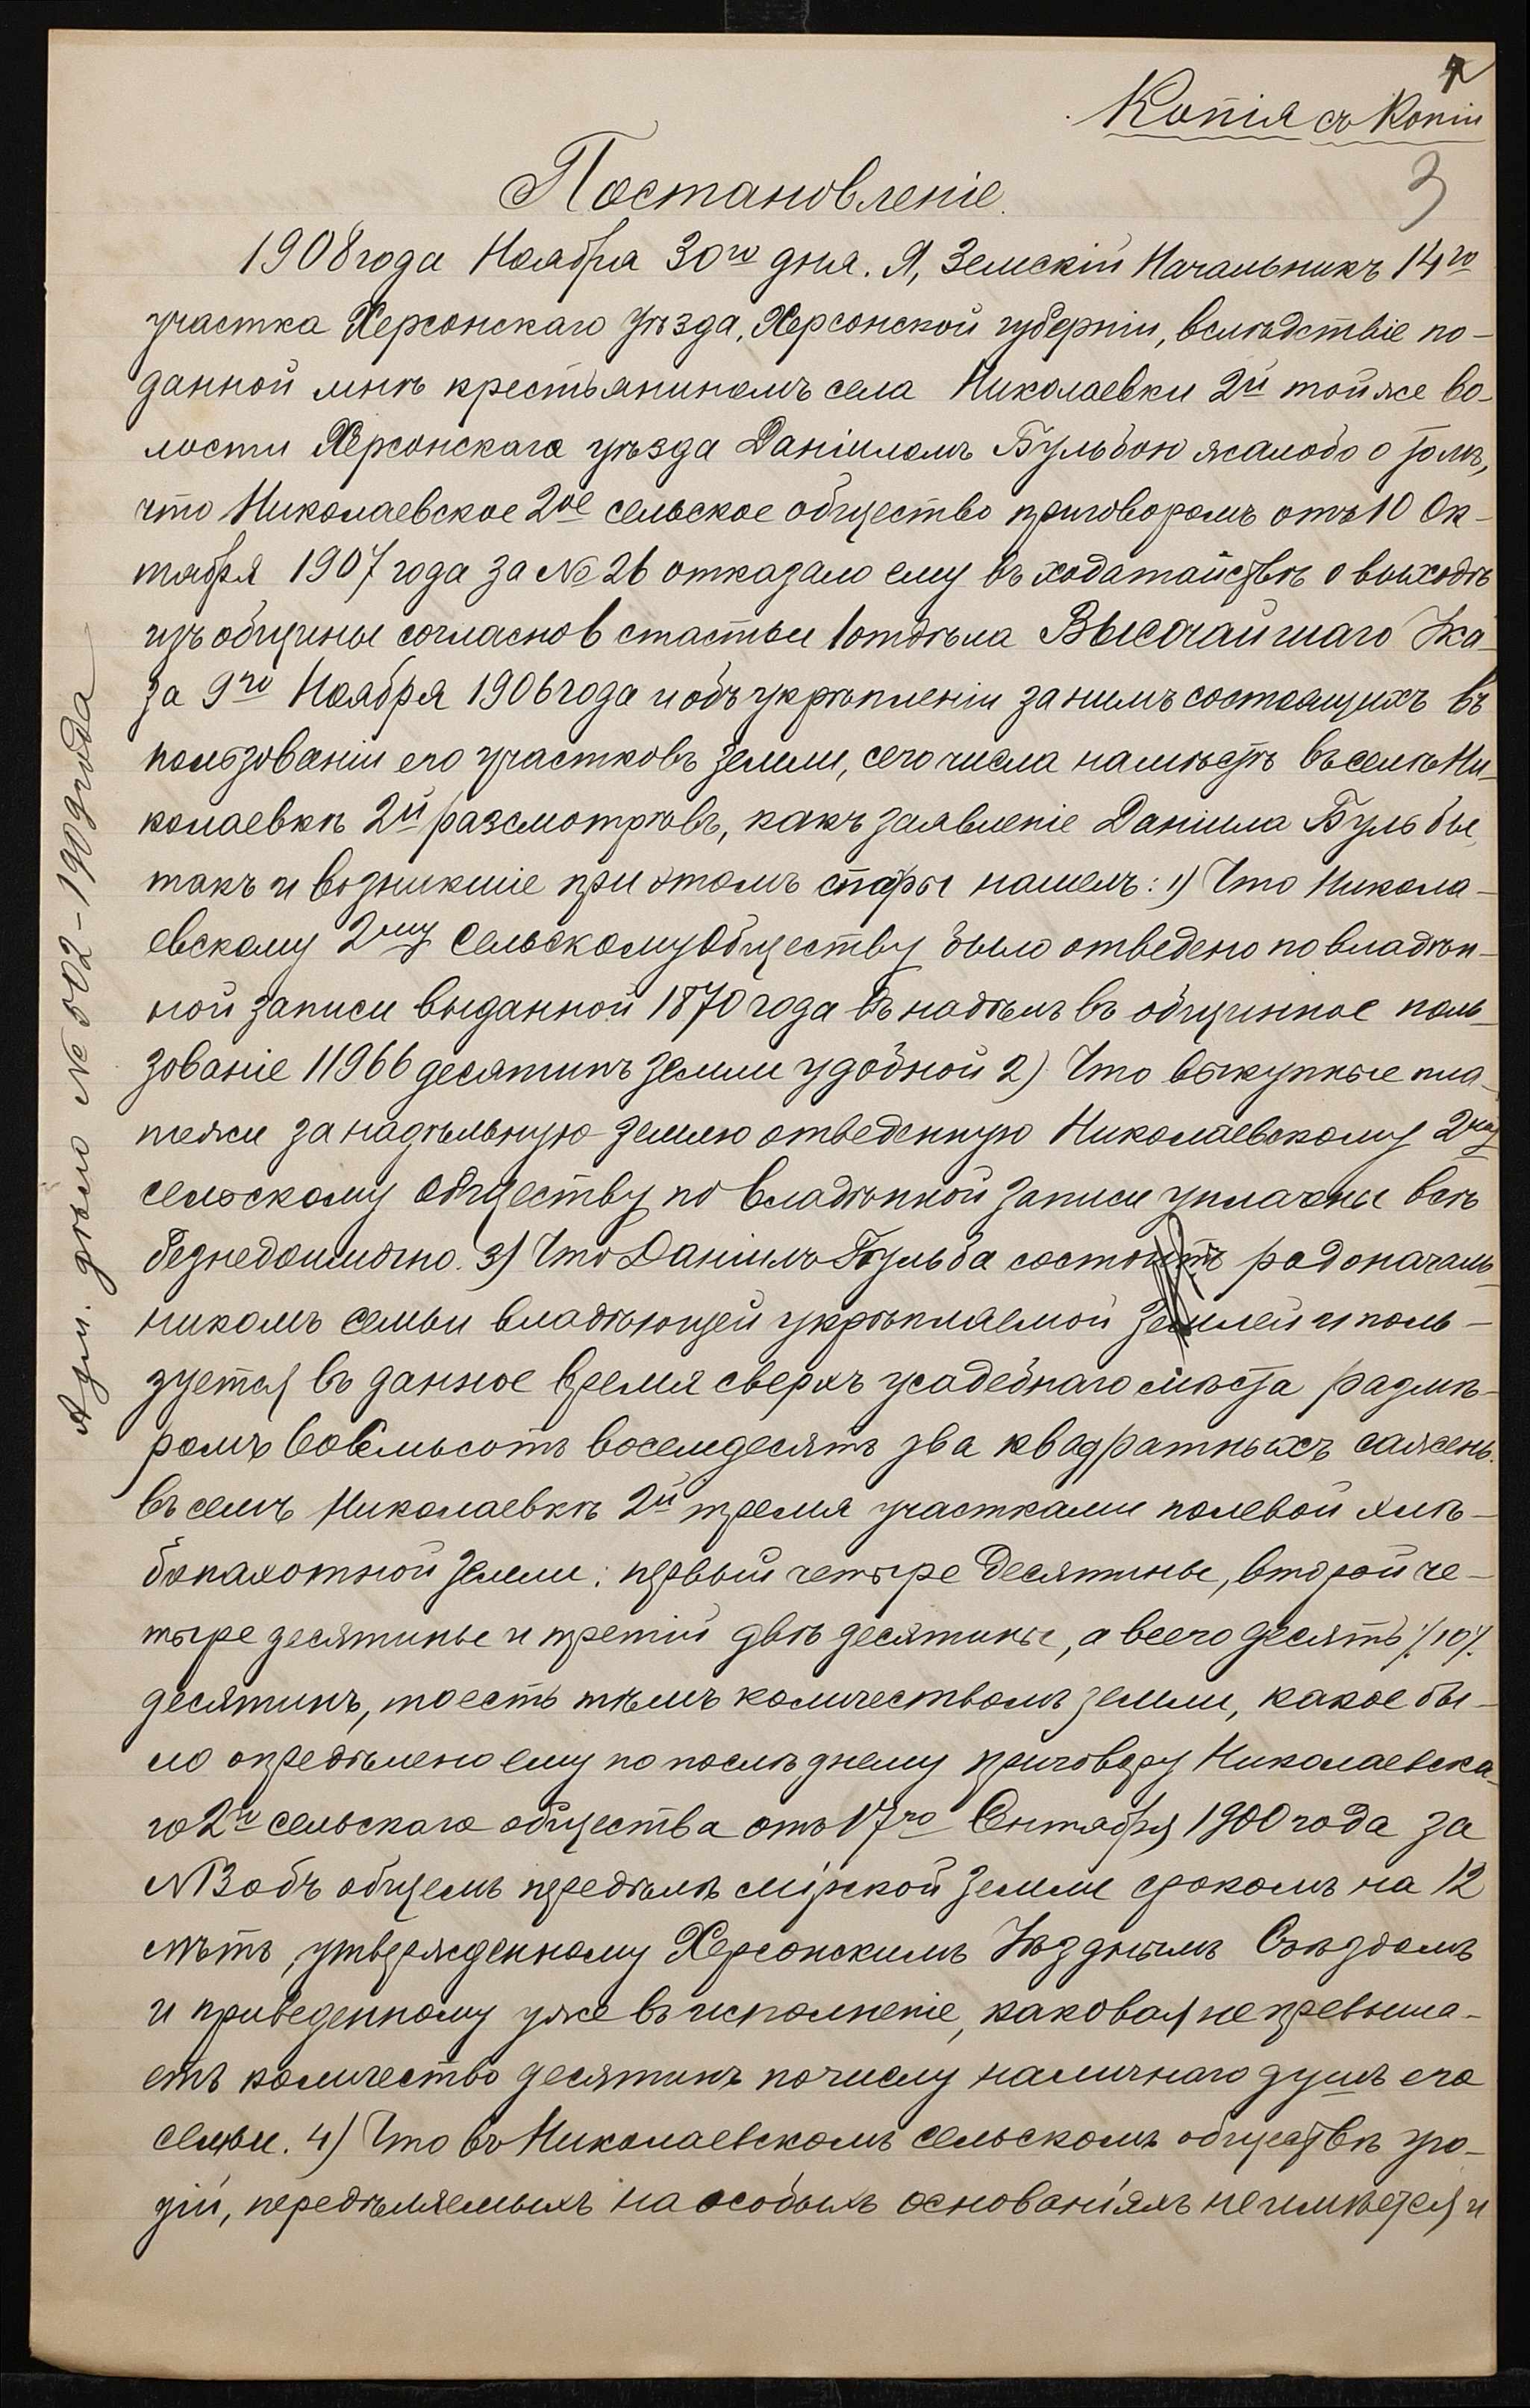 4
Копія съ Копіи
3
Постановленіе.
1908 года Ноября 30го дня. Я, Земскій Начальникъ 14го
участка Херсонскаго уѣзда, Херсонской губерніи, вслѣдствіе по-
данной мнѣ крестьяниномъ села Николаевки 2й той же во-
лости Херсонскаго уѣзда Даніиломъ Бульбою жалобо о томъ,
что Николаевское 2ое сельское общество приговоромъ отъ 10 Ок-
тября 1907 года за № 26 отказало ему въ ходатайствѣ о выходѣ
изъ общины согласно в статьи 1 отдѣла Высочайшаго Ука-
за 9го Ноября 1906 года и объ укрѣпленіи за нимъ состоящихъ въ
пользованіи его участковъ земли, сего числа на мѣстѣ въ селѣ Ни-
колаевкѣ 2й разсмотрѣвъ, какъ заявленіе Даніила Бульбы,
такъ и возникшіе при этомъ споры нашелъ: 1) Что Никола-
евскому 2му Сельскому Обществу было отведено по владѣн-
ной записи выданной 1870 года въ надѣлъ въ общинное поль-
зованіе 11966 десятинъ земли удобной 2) Что выкупные пла-
тежи за надѣльную землю отведенную Николаевскому 2му
сельскому обществу по владѣнной записи уплачены всѣ
безнедоимочно. 3) Что Даніилъ Бульба состоитъ родоначаль-
никомъ семьи владѣющей укрѣпляемой землей и поль-
зуется въ данное время сверхъ усадебнаго мѣста размѣ-
ромъ восемьсотъ восемдесятъ два квадратныхъ сажень
въ селѣ Николаевкѣ 2й тремя участками полевой хлѣ-
бопахотной земли: первый четыре десятины, второй че-
тыре десятины и третій двѣ десятины, а всего десять /10/
десятинъ, тоесть тѣмъ количествомъ земли, какое бы-
ло опредѣлено ему по послѣднему приговору Николаевска-
го 2го сельскаго общества отъ 17го Сентября 1900 года за
№ 3 объ общемъ передѣлѣ мірской земли срокомъ на 12
лѣтъ, утвержденному Херсонскимъ Уѣзднымъ Съѣздомъ
и приведенному уже въ исполненіе, каковая не превыша-
етъ количество десятинъ по числу наличнаго душъ его
семьи. 4) Что въ Николаевскомъ сельскомъ обществѣ уго-
дій, передѣляемыхъ на особыхъ основаніяхъ не имѣется и
Адм. дѣло № 502-190 года